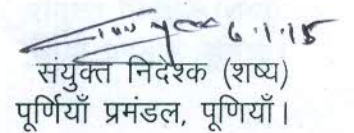 6.1.15
संयुक्त निदेशक (शष्य)
पूर्णियाँ प्रमंडल, पूणियाँ।